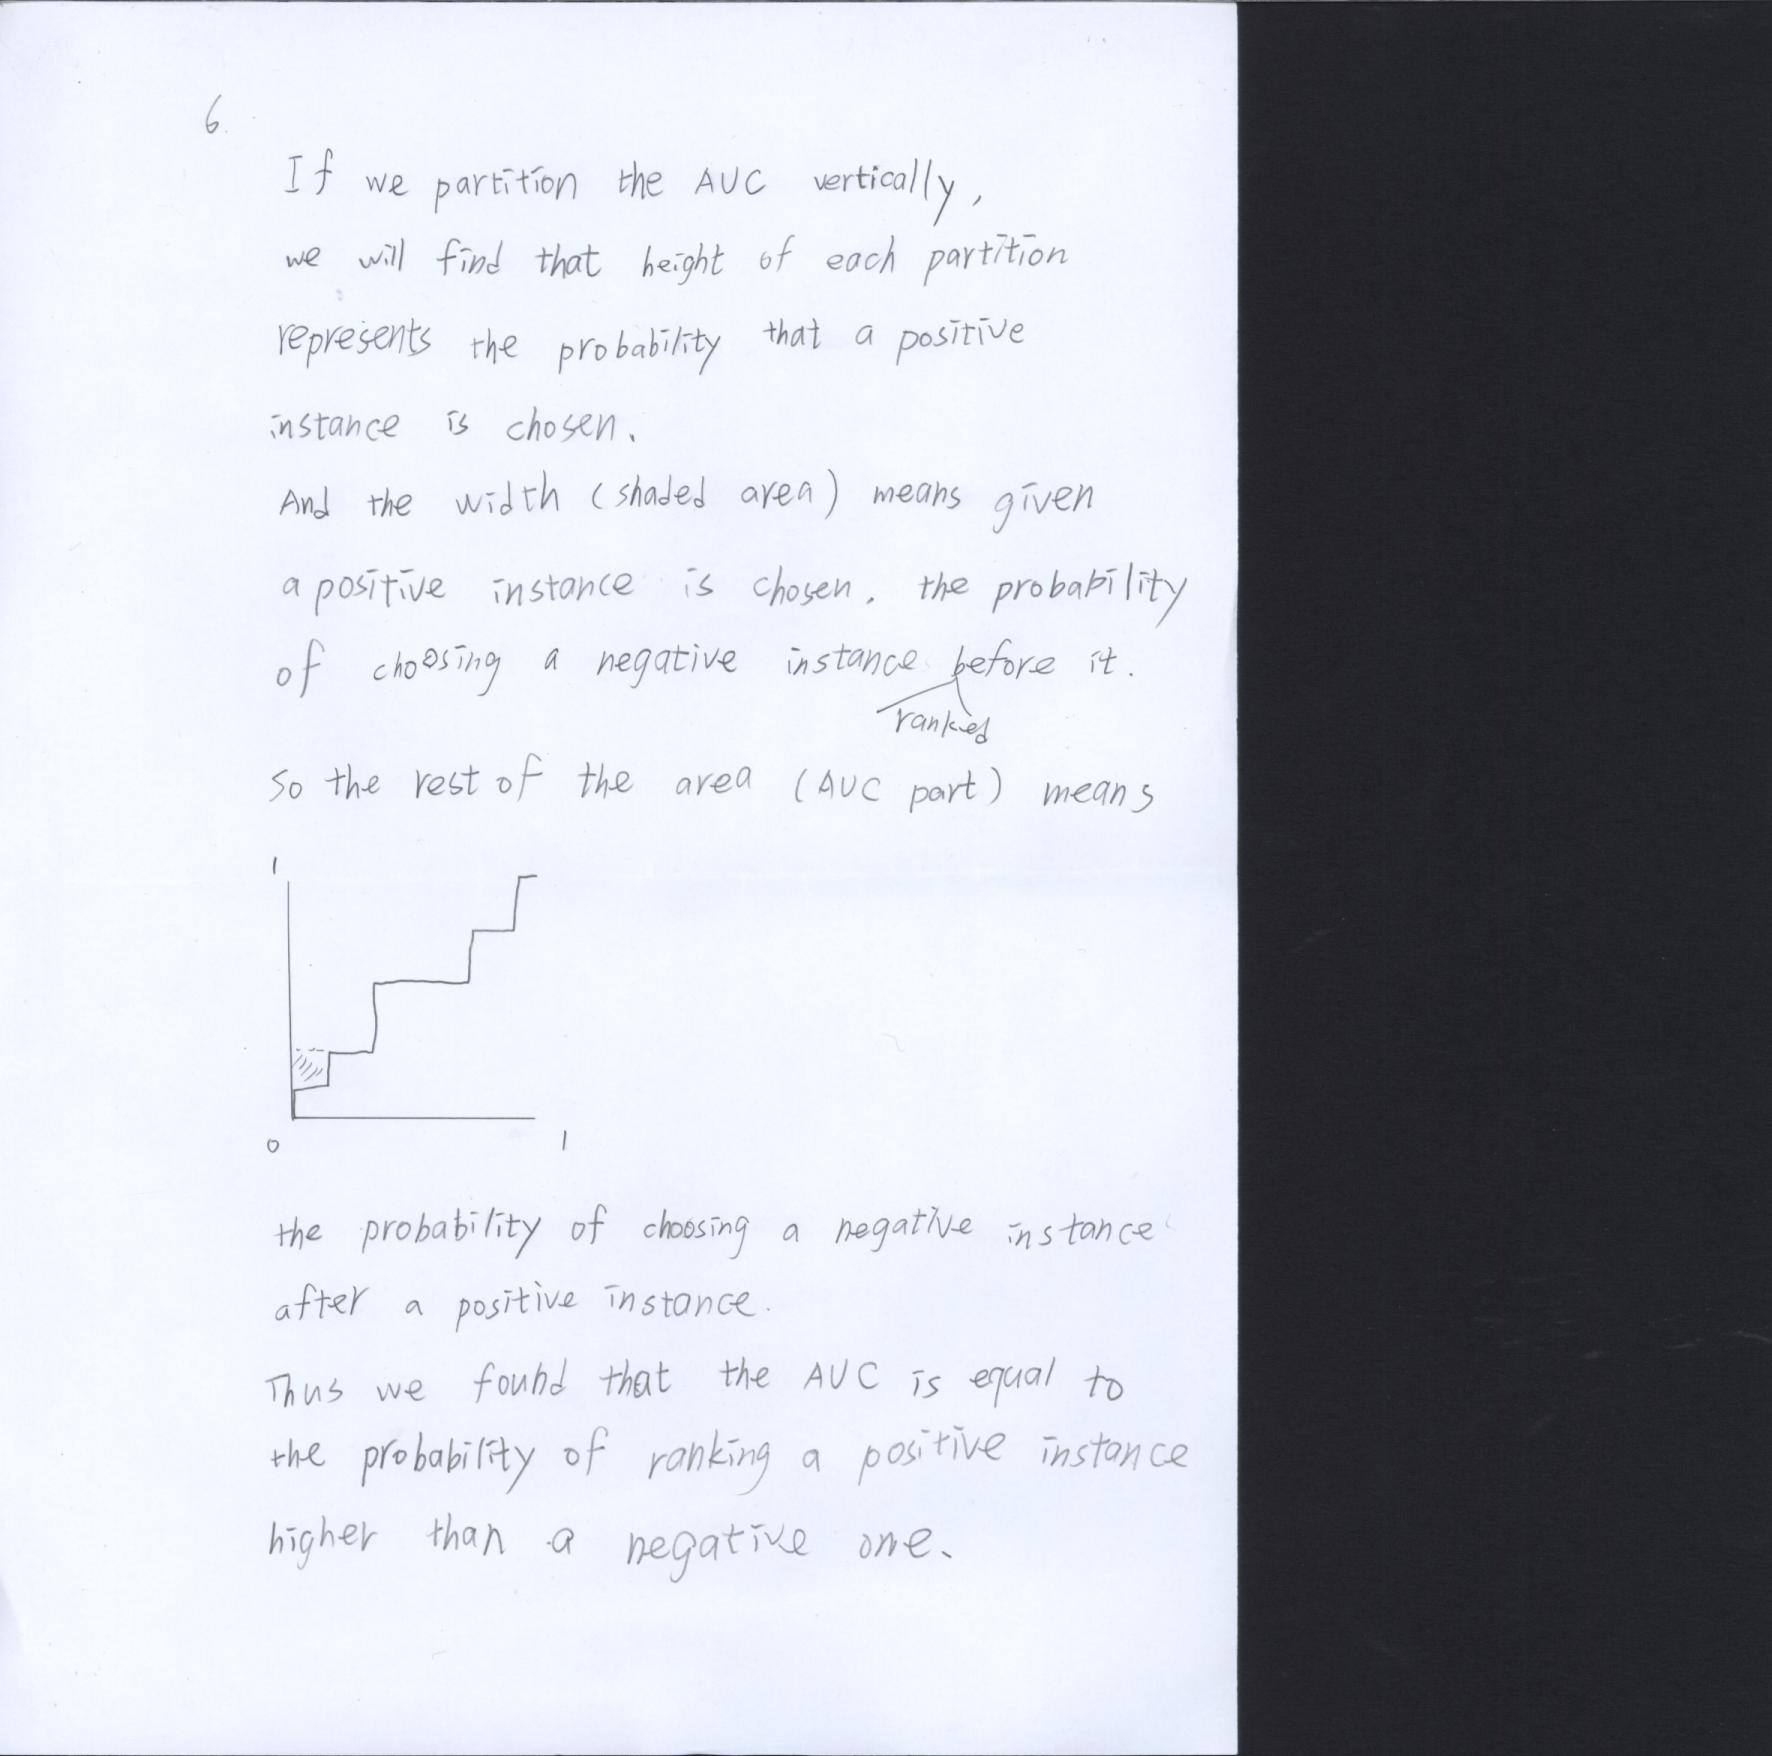 6.
If we partition the AUC vertically,
we will find that height of each partition
represents the probability that a positive
instance is chosen.
And the width (shaded area) means given
a positive instance is chosen, the probability
of choosing a negative instance before it.
ranked
So the rest of the area (AUC part) means
1
0 1
the probability of choosing a negative instance
after a positive instance.
Thus we found that the AUC is equal to
the probability of ranking a positive instance
higher than a negative one.